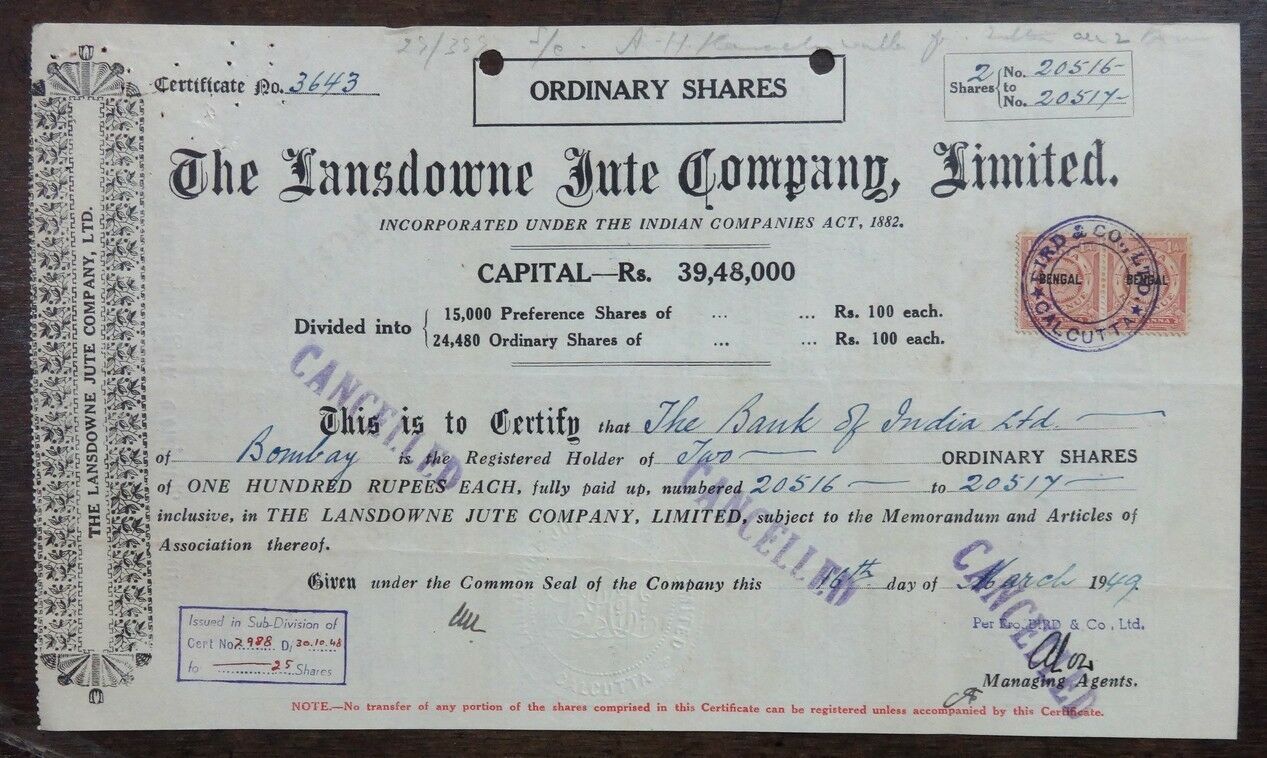 29/399
Certificate No. 3643
ORDINARY SHARES
2 Shares { No. 20516
to
No. 20517
The Lansdowne Jute Company, Limited.
INCORPORATED UNDER THE INDIAN COMPANIES ACT, 1882.
CAPITAL—Rs. 39,48,000
Divided into { 15,000 Preference Shares of ... ... Rs. 100 each.
24,480 Ordinary Shares of ... ... Rs. 100 each.
BIRD & CO., LTD. ★ CALCUTTA ★
BENGAL BENGAL
THE LANSDOWNE JUTE COMPANY, LTD.
This is to Certify that The Bank of India Ltd.
of Bombay is the Registered Holder of Two ORDINARY SHARES
of ONE HUNDRED RUPEES EACH, fully paid up, numbered 20516 to 20517
inclusive, in THE LANSDOWNE JUTE COMPANY, LIMITED, subject to the Memorandum and Articles of
Association thereof.
Given under the Common Seal of the Company this 16th day of March 1949
CANCELLED
CANCELLED
CANCELLED
Issued in Sub-Division of
Cert No 2988 D/ 30.10.48
to 25 Shares
CALCUTTA
Per Pro. BIRD & Co., Ltd.
Managing Agents.
NOTE.—No transfer of any portion of the shares comprised in this Certificate can be registered unless accompanied by this Certificate.